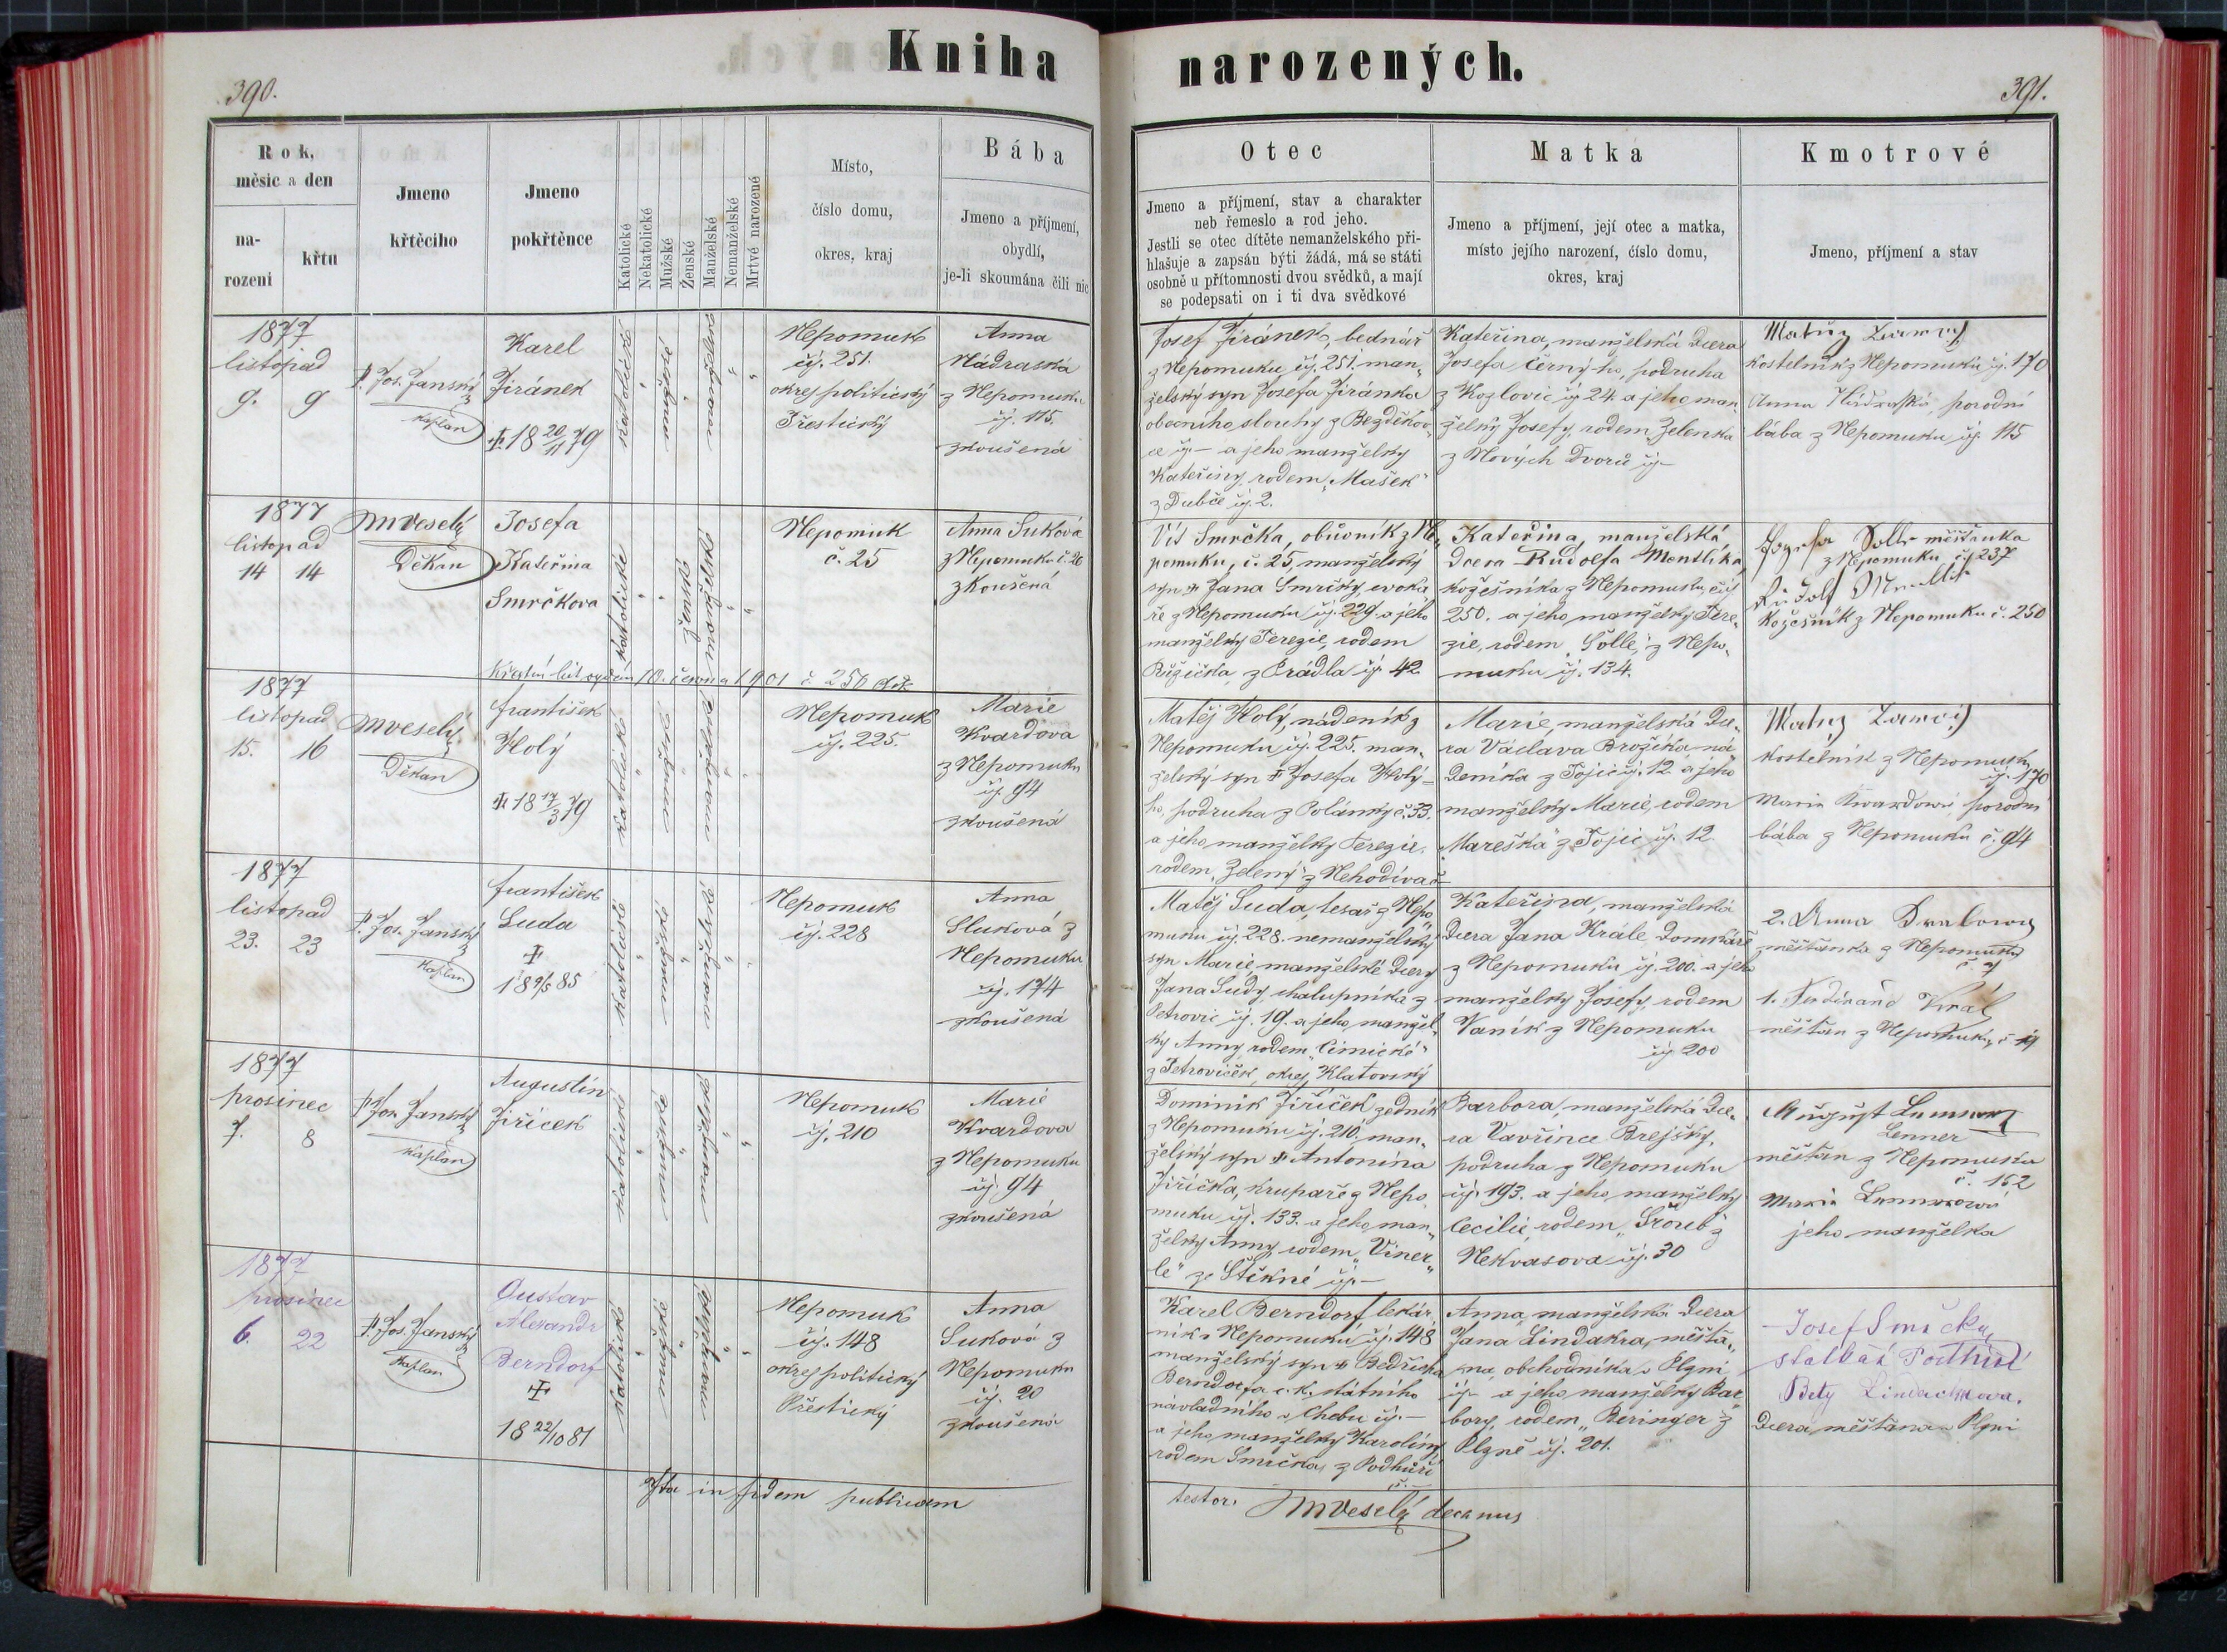 390.
Kniha
Rok,
měsíc a den
na-
rozeni
křtu
Jmeno
křtěcího
Jmeno
pokřtěnce
Katolické
Nekatolické
Mužské
Ženské
Manželské
Nemanželské
Mrtvé narozené
Místo,
číslo domu,
okres, kraj
Bába
Jmeno a příjmení,
obydlí,
je-li skoumána čili nic
1877
listopad
9. 9
P. Jos. Janský
kaplan
Karel
Jiránek
18 20/11 79
Nepomuk
čj. 251.
okres politický
Přestický
Anna
Nádraská
z Nepomuku
čj. 115.
zkoušená
1877
listopad
14 14
MVeselý
Děkan
Josefa
Kateřina
Smrčkova
Nepomuk
č. 25
Anna Suková
z Nepomuku č. 20
zkoušená
Křestní list vydán 10. června 1901 č. 250
1877
listopad
15. 16
MVeselý
Děkan
František
Holý
18 17/3 79
Nepomuk
čj. 225.
Marie
Kvardova
z Nepomuku
čj. 94
zkoušená
1877
listopad
23. 23
P. Jos. Janský
kaplan
František
Suda
18 9/5 85
Nepomuk
čj. 228
Anna
Sluková z
Nepomuku
čj. 174
zkoušená
1877
prosinec
7. 8
P. Jos. Janský
kaplan
Augustin
Jiříček
Nepomuk
čj. 210
Marie
Kvardova
z Nepomuku
čj. 94
zkoušená
1877
prosinec
6. 22
P. Jos. Janský
kaplan
Gustav
Alexandr
Berndorf
18 22/10 81
Nepomuk
čj. 148
okres politický
Přestický
Anna
Suková z
Nepomuku
čj. 20
zkoušená
Ita in fidem publicam
narozených.
391.
Otec
Jmeno a příjmení, stav a charakter
neb řemeslo a rod jeho.
Jestli se otec dítěte nemanželského při-
hlašuje a zapsán býti žádá, má se státi
osobně u přítomnosti dvou svědků, a mají
se podepsati on i ti dva svědkové
Matka
Jmeno a příjmení, její otec a matka,
místo jejího narození, číslo domu,
okres, kraj
Kmotrové
Jmeno, příjmení a stav
Josef Jiránek, bednář
z Nepomuku, čj. 251. man-
želský syn Josefa Jiránka
obecního slouhy z Bezděkov-
ce čj. – a jeho manželky
Kateřiny, rodem „Mašek“
z Dubče čj. 2.
Kateřina, manželská dcera
Josefa Černý-ho, podruha
z Kozlovic čj. 24 a jeho man-
želky Josefy, rodem „Zelenka
z Nových Dvorů čj. –
kostelník z Nepomuku čj. 170
Anna Nádraská, porodní
bába z Nepomuku čj. 115
Vít Smrčka, obuvník z Ne-
pomuku, č. 25, manželský
syn Jana Smrčky,
z Nepomuku čj. 229 a jeho
manželky Terezie, rodem
Růžička, z Prádla čj. 42
Kateřina, manželská
dcera Rudolfa Mentlíka,
kožešníka z Nepomuku čís
250. a jeho manželky Tere-
zie, rodem „Solle“, z Nepo-
muku čj. 134.
Josefa Solle měšťanka
z Nepomuku čj 237
Rudolf Mentlík
Kožešník z Nepomuku č. 250
Matěj Holý, nádeník z
Nepomuku čj. 225. man-
želský syn Josefa Holý-
ho, podruha z Polánky č. 33.
a jeho manželky Terezie.
rodem „Zelený“ z Nehodíva č –
Marie, manželská dce-
ra Václava Brožíka ná-
deníka z Tojic čj. 12 a jeho
manželky Marie, rodem
„Mareška“ z Tojic čj. 12.
kostelník z Nepomuku
čj. 170
Marie Kvardová, porodní
bába z Nepomuku č. 94
Matěj Suda, tesař z Nepo-
muku čj. 228. nemanželský
syn Marie, manželské dcery
Jana Sudy, chalupníka z
Petrovic čj. 19. a jeho manžel-
ky Anny rodem „Cimické“
z Petroviček, okres Klatovský
Kateřina, manželská
dcera Jana Krále, domkáře
z Nepomuku čj. 200. a jeho
manželky Josefy, rodem
Vaník z Nepomuku
čj. 200
2. Anna
měšťanka z Nepomuku
1. Ferdinand Král
měšťan z Nepomuku
Dominik Jiříček zedník
z Nepomuku čj. 210. man-
želský syn Antonína
Jiříčka, krupaře z Nepo-
muku čj. 133. a jeho man-
želky Anny, rodem „Viner-
le“ ze Štěkné čj. –
Barbora, manželská dce-
ra Vavřince Brejšky,
podruha z Nepomuku
čj. 193. a jeho manželky
Cecilie, rodem „Šroub“ z
Nekvasova čj. 30
August
Lenner
měšťan z Nepomuku
č. 152
Marie
jeho manželka
Karel Berndorf lékár-
ník v Nepomuku čj. 148
manželský syn Bedřicha
Berndorfa c. k. státního
návladního v Chebu čj. –
a jeho manželky Karolíny
rodem Smrčka, z Podhůří
č. –
Anna, manželská dcera
Jana Lindakra, měšťa-
na, obchodníka v Plzni
čj. – a jeho manželky Bar-
bory, rodem „Beringer“ z
Plzně čj. 201.
Josef Smrčka
Bety
dcera měšťana v Plzni
testor: MVeselý decanus